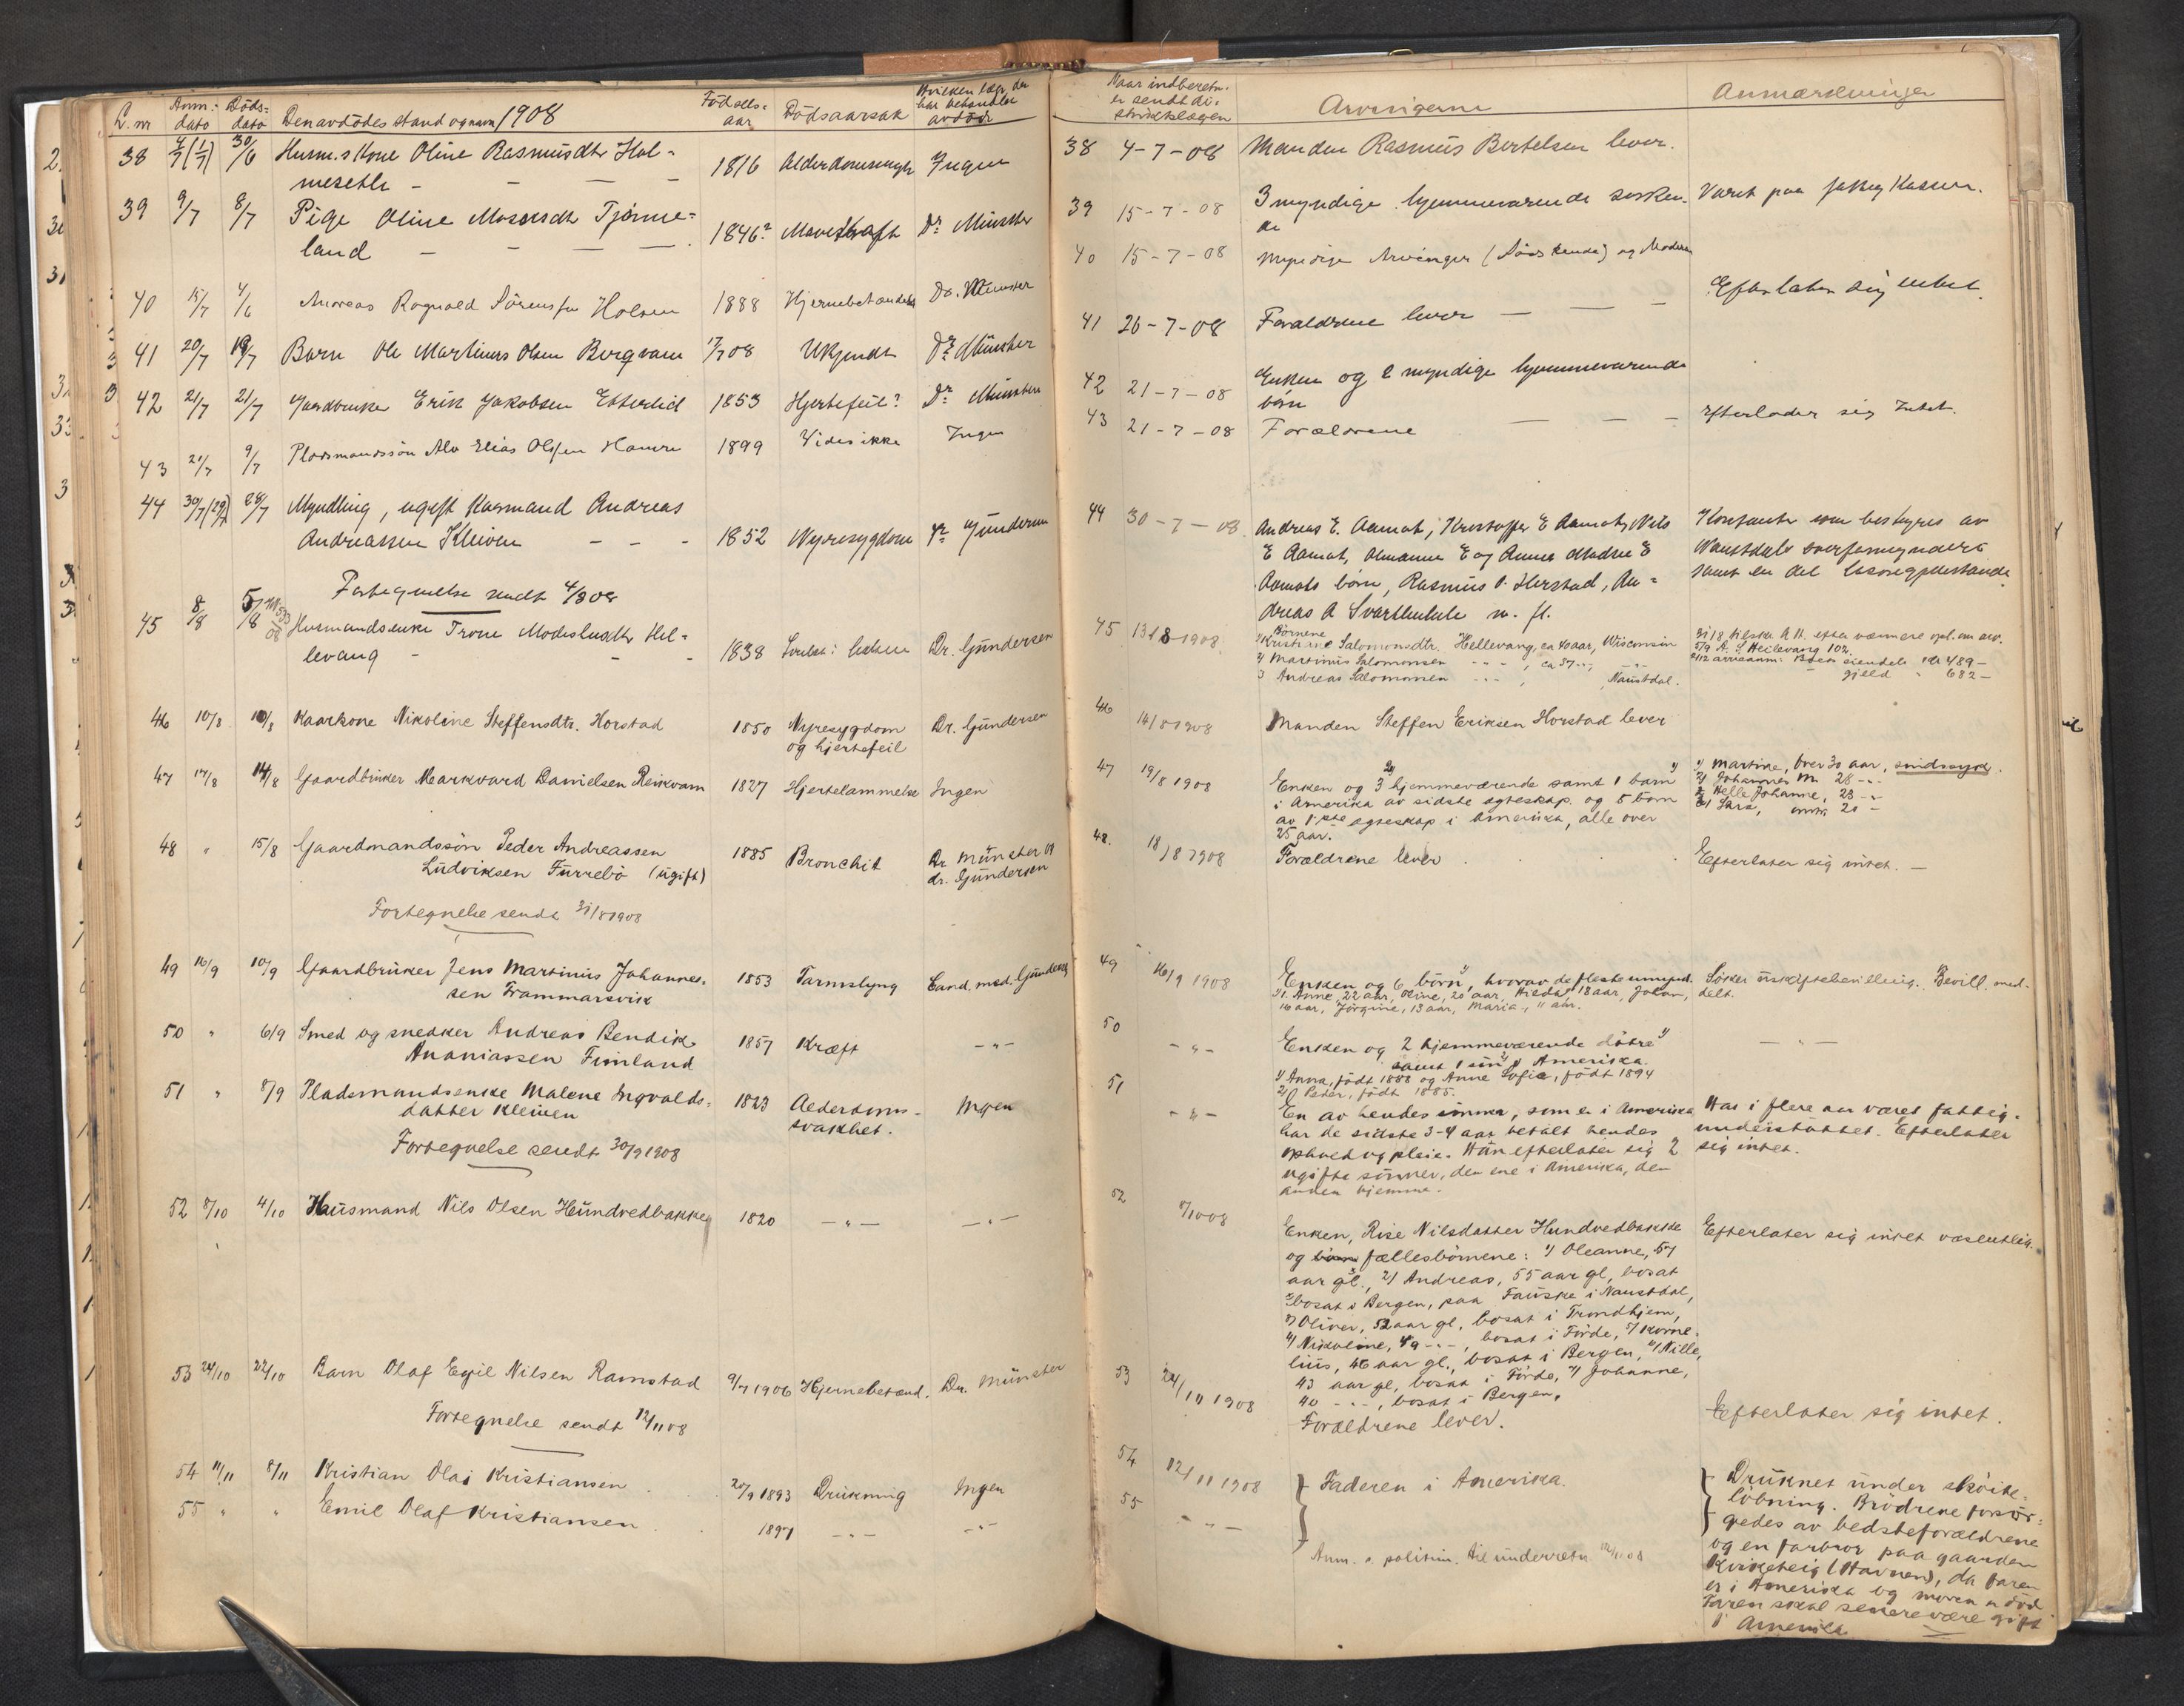 L. nr Anm.- dato Döds- dato Den avdödes stand og navn 1908 Födsels- aar Dödsaarsak Hvilken læge der har behandlet avdöde
38 4/7 (1/7) 30/6 Husm.s Kone Oline Rasmusdtr Hol-
mesetli - - - - 1816 Alderdomssvagh Ingen
39 9/7 8/7 Pige Oline Mosesdtr Tjönne-
land - - - 1846? Mavekraft Dr Münster
40 15/7 4/6 Andreas Ragnvald Sörensen Holsen 1888 Hjernebetændelse Dr. Münster
41 20/7 19/7 Barn Ole Martinus Olsen Bergvam 17/7 08 Ukjendt Dr Münster
42 21/7 21/7 Gardbruker Erik Jakobsen Ettrelid 1853 Hjertefeil? Dr Münster
43 21/7 9/7 Pladsmandssön Alv Elias Olsen Hamre 1899 Vides ikke Ingen
44 30/7 (29/7) 28/7 Myndling, ugift Kaarmand Andreas
Andreassen Kleiven - - - 1852 Nyresygdom Dr Gundersen
Fortegnelse sendt 4/8 08
45 8/8 5/8 Husmandsenke Trone Modestusdtr Hel-
levang - - - 1838 Dr. Gündersen
46 10/8 10/8 Kaarkone Nikoline Steffensdtr. Horstad 1850 Nyresygdom
og hjertefeil Dr. Gündersen
47 17/8 14/8 Gaardbruker Markvard Danielsen Reikvam 1827 Hjertelammelse Ingen
48 " 15/8 Gaardmandssön Peder Andreassen
Ludviksen Furrebö (ugift) 1885 Bronchit Dr Münster og
dr. Gündersen
Fortegnelse sendt 31/8 1908
49 16/9 10/9 Gaardbruker Jens Martinus Johannes-
sen Frammarsvik 1853 Tarmslyng Cand. med. Gündersen
50 " 6/9 Smed og snedker Andreas Bendik
Ananiassen Fimland 1857 Kræft -"-
51 " 8/9 Pladsmandsenke Malene Ingvalds-
datter Kleiven 1823 Alderdoms-
svakhet. Ingen
Fortegnelse sendt 30/9 1908
52 8/10 4/10 Husmand Nils Olsen Hundvedbakken 1820 -"- -"-
53 24/10 22/10 Barn Olaf Egil Nilsen Ramstad 9/7 1906 Hjernebetænd. Dr. Münster
Fortegnelse sendt 12/11 08
54 11/11 8/11 Kristian Olai Kristiansen 20/9 1893 Drukning Ingen
55 " " Emil Olaf Kristiansen 1897 -"- -"-
Naar indberetn. er sendt di- striktslægen Arvingerne Anmærkninger
38 4-7-08 Manden Rasmus Bertelsen lever.
39 15-7-08 3 myndige hjemmeværende sösken-
de Været paa fattig Kassen.
40 15-7-08 Myndige Arvinger (Södskende) og Moderen
Efterlater sig intet.
41 26-7-08 Forældrene lever - - -
42 21-7-08 Enken og 2 myndige hjemmeværende
börn
43 21-7-08 Forældrene - - - Efterlader sig Intet.
44 30-7-08 Andreas E. Aamot, Kristoffer E Aamot, Nils
E Aamot, Almanna E og Anna Madsine E
Aamots börn, Rasmus P. Herstad, An-
dreas A Svarthumle m. fl.
Kontanter som bestyres av
Naustdals overformynderi
samt en del lösöregjenstande
45 13/8 1908 Börnene
1) Kristiane Salomonsdtr. Hellevang, ca 40 aar, Wisconsin
2) Martinus Salomonsen -"-, ca 37 -"-, -"-
3 Andreas Salomonsen -"-, Naustdal.
31/8 tilskr. A. H. efter nærmere opl. om arv.
5/9 A. S Hellevang 102.
2/12 arveanm: Boets eiendele kr 489-
gjeld " 682-
46 14/8 1908 Manden Steffen Eriksen Horstad lever
47 19/8 1908 Enken og 3 2) hjemmeværende samt 1 barn 1)
i Amerika av sidste egteskap og 5 börn
av 1ste egteskap i Amerika, alle over
25 aar.
1) Martine, över 30 aar, sindssyk.
2) Johannes M. 28 -"-
3) Helle Johanne, 23 -"-
4) Sara, omtr. 20 -
48. 18/8 1908 Forældrene lever . . . Efterlater sig intet. -
49 16/9 1908 Enken og 6 börn 1), hvorav de fleste umynd.
1) 1. Anne, 22 aar, Oline, 20 aar, Hilda, 18 aar, Johan,
16 aar, Jörgine, 13 aar, Maria, 11 aar.
Söker uskiftebevilling. Bevill. med-
delt.
50 -"- Enken og 2 hjemmeværende döttre 1)
samt 1 sön 2) i Amerika. -"-
1) Anna, födt 1888 og Anne Sofie, födt 1894
2) Peter, födt 1885.
51 -"- En av hendes sönner, som er i Amerika
har de sidste 3-4 aar betalt hendes
ophold og pleie. Han efterlater sig 2
ugifte sönner, den ene i Amerika, den
anden hjemme.
Har i flere aar været fattig-
understöttet. Efterlater
sig intet.
52 8/10 08 Enken, Rise Nilsdatter Hundvedbakke
og börn fællesbörnene: 1) Oleanne, 57
aar gl., 2) Andreas, 55 aar gl, bosat
bosat i Bergen, paa Fauske i Naustdal,
3) Oliver, 52 aar gl, bosat i Trondhjem,
4) Nikoline, 49 -"-, bosat i Förde, 5) Korne-
lius, 46 aar gl., bosat i Bergen, 6) Nille,
43 aar gl, bosat i Förde, 7) Johanne,
40 -"-, bosat i Bergen.
Efterlater sig intet væsentlig.
53 24/10 1908 Forældrene lever. Efterlater sig intet.
54 12/11 1908 Faderen i Amerika.
55 -"-
Anm. s. politim. til underretn. 12/11 08
Druknet under sköite-
löbning. Brödrene forsör-
gedes av bedsteforældrene
og en farbror paa gaarden
Kviketeig (Havnen), da faren
er i Amerika og moren er död
Faren skal senere være gift
i Amerika